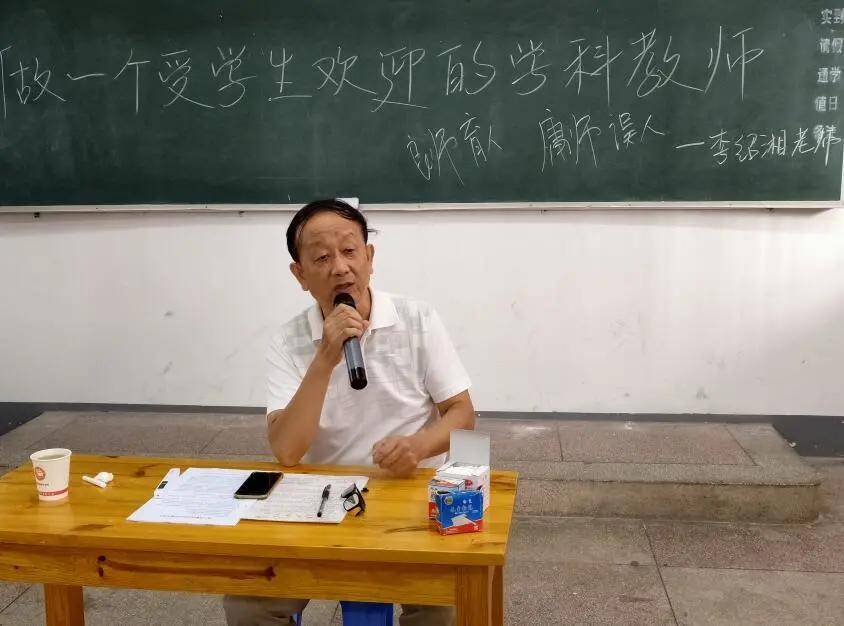 做一个受学生欢迎的学科教师
良师育人 庸师误人 —李绍湘老师
实到
请假
通学
值日